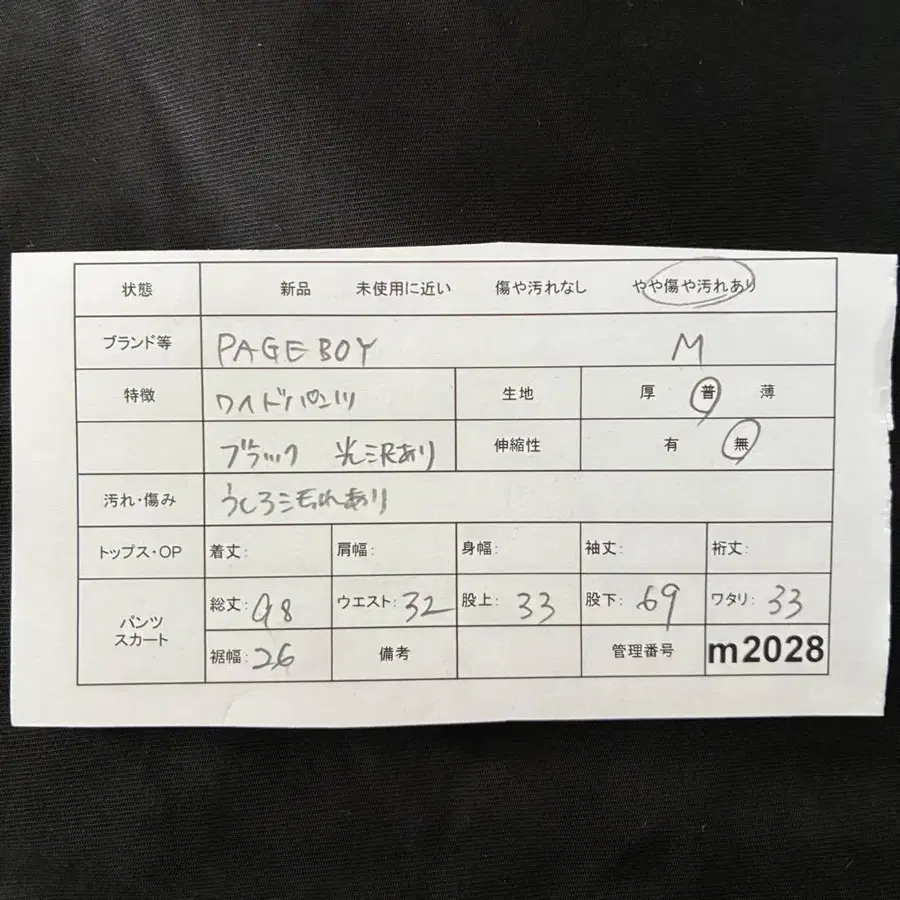 状態 新品 未使用に近い 傷や汚れなし やや傷や汚れあり
ブランド等 PAGEBOY M
特徴 ワイドパンツ 生地 厚 普 薄
ブラック 光沢あり 伸縮性 有 無
汚れ・傷み うしろ汚れあり
トップス・OP 着丈: 肩幅: 身幅: 袖丈: 裄丈:
パンツ スカート 総丈: 98 ウエスト: 32 股上: 33 股下: 69 ワタリ: 33
裾幅: 26 備考 管理番号 m2028